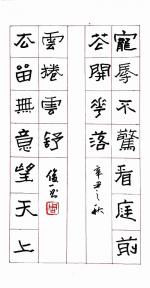 寵辱不驚看庭前
花開花落
辛丑之秋
雲捲雲舒
去留無意望天上